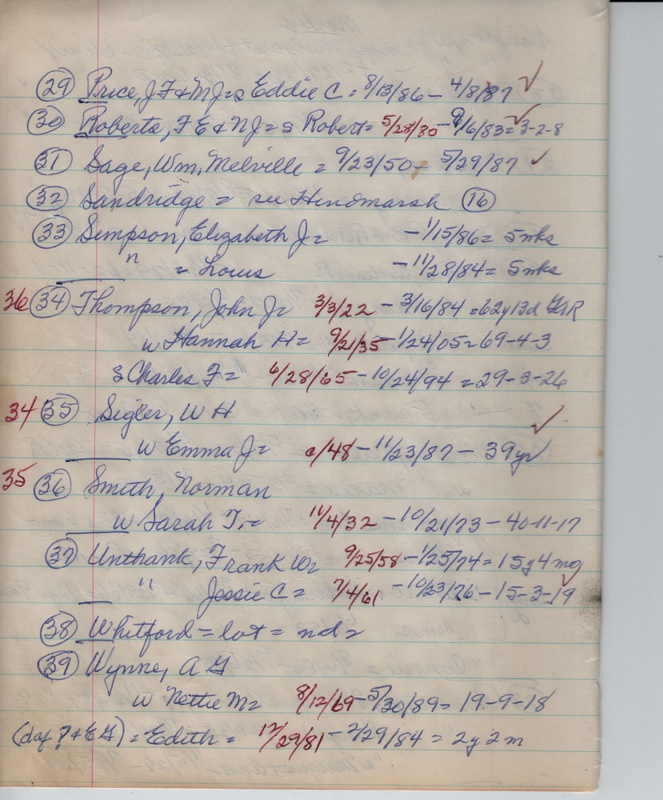 (29) Price, J F & M J = s Eddie C = 8/13/86 - 4/8/87 ✓
(30) Roberts, F E & N J = s Robert = 5/28/80 - 9/6/83 = 3-2-8 ✓
(31) Sage, Wm, Melville = 9/23/50 - 5/29/87 ✓
(32) Sandridge = see Hindmarsh (16)
(33) Simpson, Elizabeth J = - 1/15/86 = 5 mks
" = Louis - 11/28/84 = 5 mks
36 (34) Thompson, John J = 3/3/22 - 3/16/84 = 62y13d GAR
w Hannah H = 9/21/35 - 1/24/05 = 69-4-3
s Charles F = 6/28/65 - 10/24/94 = 29-3-26
34 (35) Sigler, W H ✓
w Emma J = c/48 - 11/23/87 - 39 yr
35 (36) Smith, Norman
w Sarah T. = 11/4/32 - 10/21/73 - 40-11-17
(37) Unthank, Frank W = 9/25/58 - 1/25/74 = 15y4mg
" Jessie C = 7/4/61 - 10/23/76 - 15-3-19
(38) Whitford = lot = nd =
(39) Wynne, A G
w Nettie M = 8/12/69 - 5/30/89 = 19-9-18
(daf ? & E G) = Edith = 12/29/81 - 2/29/84 = 2y 2m